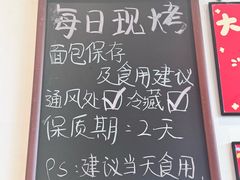 每日现烤
面包保存
及食用建议
通风处☑冷藏☑
保质期：2天
PS：建议当天食用
大